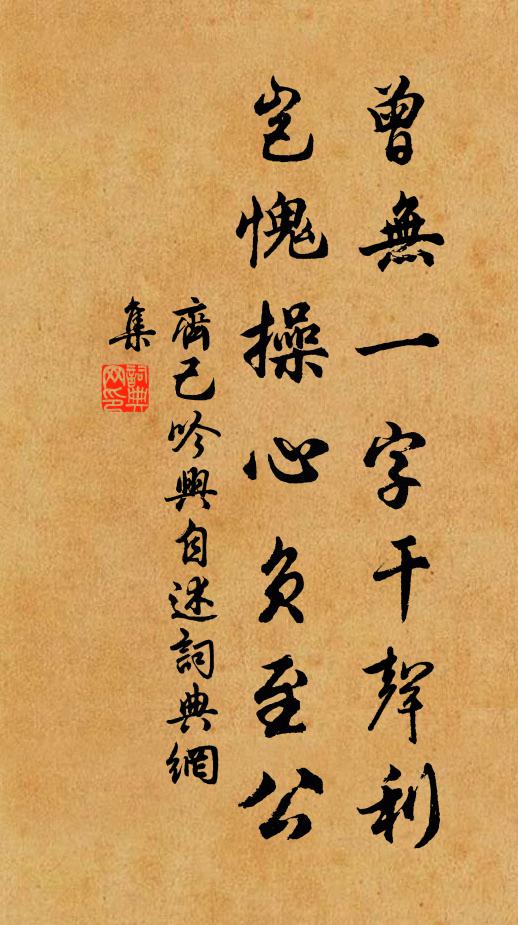 曾無一字干聲利
豈愧操心負至公
齊己吟興自述詞典網
集
詞典網印